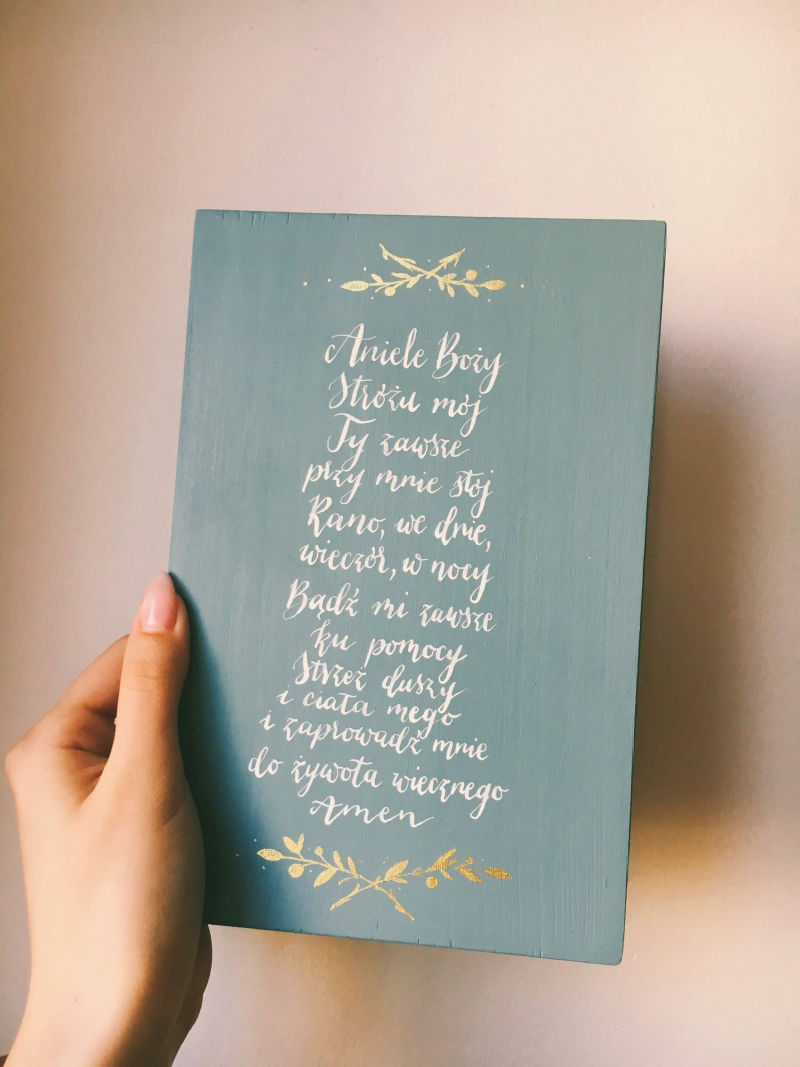 Aniele Boży
Stróżu mój
Ty zawsze
przy mnie stój
Rano, we dnie,
wieczór, w nocy
Bądź mi zawsze
ku pomocy
Strzeż duszy
i ciała mego
i zaprowadź mnie
do żywota wiecznego
Amen